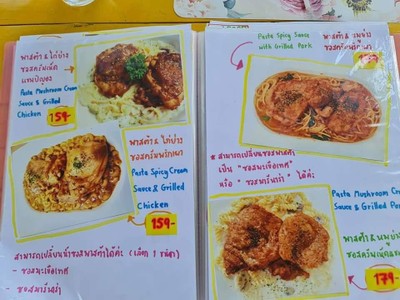 พาสต้า & ไก่ย่าง
ซอสครีมเห็ด
Pasta Mushroom Cream
Sauce & Grilled
Chicken
159-
พาสต้า & ไก่ย่าง
ซอสครีมพริกเผา
Pasta Spicy Cream
Sauce & Grilled
Chicken
159-
สามารถเปลี่ยนเส้นพาสต้าได้ค่ะ (เลือก 1 ชนิด)
- ซอสมะเขือเทศ
- ซอสมารีนาร่า
Pasta Spicy Sauce
with Grilled Pork
พาสต้า & หมูย่าง
ซอสครีมพริกเผา
* สามารถเปลี่ยนซอสพาสต้า
เป็น "ซอสมะเขือเทศ"
หรือ "ซอสมารีนาร่า" ได้ค่ะ
Pasta Mushroom Cream
Sauce & Grilled Pork
พาสต้า & หมูย่าง
ซอสครีมเห็ด
179-